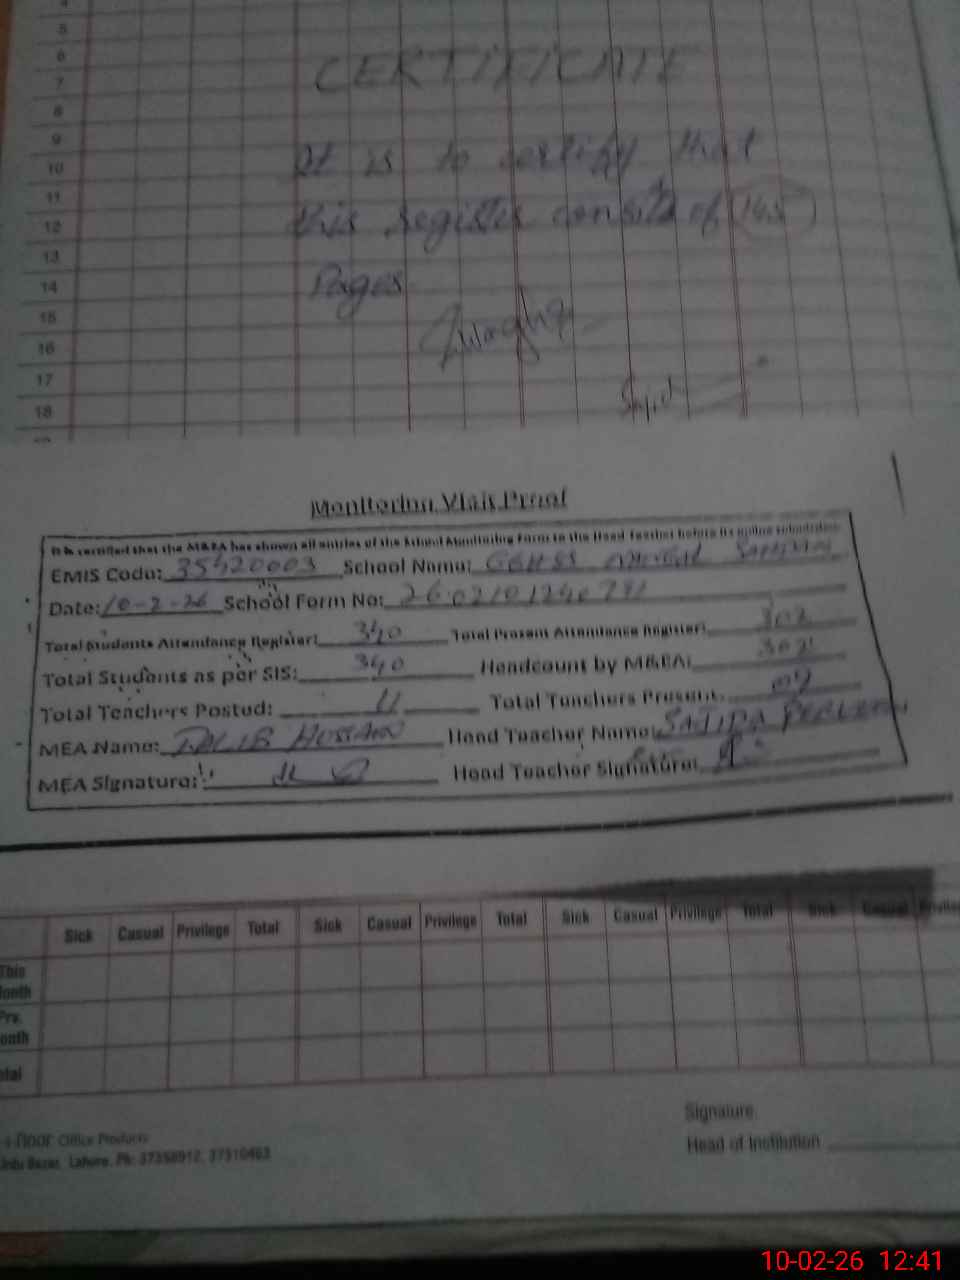 4
5
6
7
8
9
10
11
12
13
14
15
16
17
18
CERTIFICATE
It is to certify that
this register consists of
Pages
Monitoring Visit Proof
It is certified that the M&EA has shown all entries of the School Monitoring Form to the Head Teacher before its online submission.
EMIS Code: 35420003 School Name: GGHSS
Date: 10-2-26 School Form No:
Total Students Attendance Register: 340 Total Present Attendance Register: 302
Total Students as per SIS: 340 Headcount by M&EA: 302
Total Teachers Posted: 11 Total Teachers Present: 09
MEA Name: HUSSAIN Head Teacher Name: SAJIDA PERVEEN
MEA Signature: Head Teacher Signature:
Sick Casual Privilege Total Sick Casual Privilege Total Sick Casual Privilege Total Sick Casual Privilege
This
Month
Prv.
Month
Total
Signature
Head of Institution
Office Products
Urdu Bazar, Lahore. Ph: 37310463
10-02-26 12:41